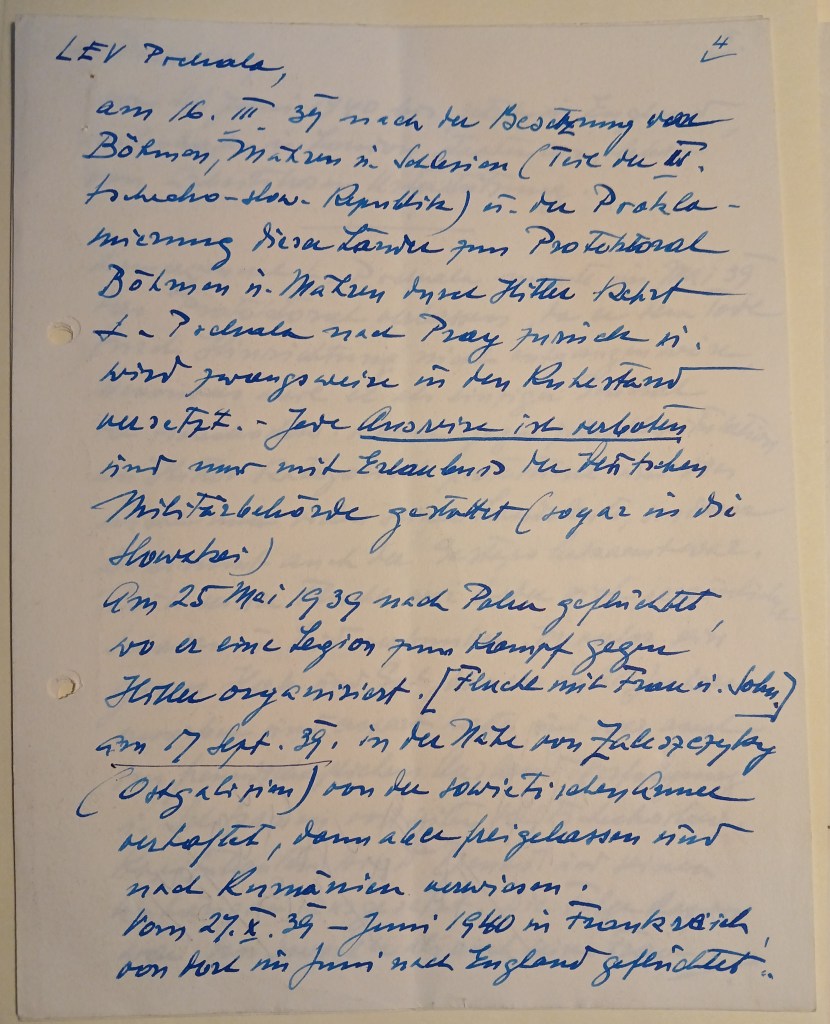 4
LEV Prchala,
am 16. III. 39 nach der Besetzung von
Böhmen, Mähren u. Schlesien (Teil der II.
tschecho-slow. Republik) u. der Prokla-
mierung dieser Länder zum Protektorat
Böhmen u. Mähren durch Hitler kehrt
L. Prchala nach Prag zurück u.
wird zwangsweise in den Ruhestand
versetzt. - Jede Ausreise ist verboten
und nur mit Erlaubnis der deutschen
Militärbehörde gestattet (sogar in die
Slowakei)
Am 25 Mai 1939 nach Polen geflüchtet,
wo er eine Legion zum Kampf gegen
Hitler organisiert. [Flucht mit Frau u. Sohn.]
am 17 Sept. 39. in der Nähe von Zaleszczyky
(Ostgalizien) von der sowietischen Armee
verhaftet, dann aber freigelassen und
nach Rumänien verwiesen.
Vom 27. X. 39 - Juni 1940 in Frankreich,
von dort im Juni nach England geflüchtet..